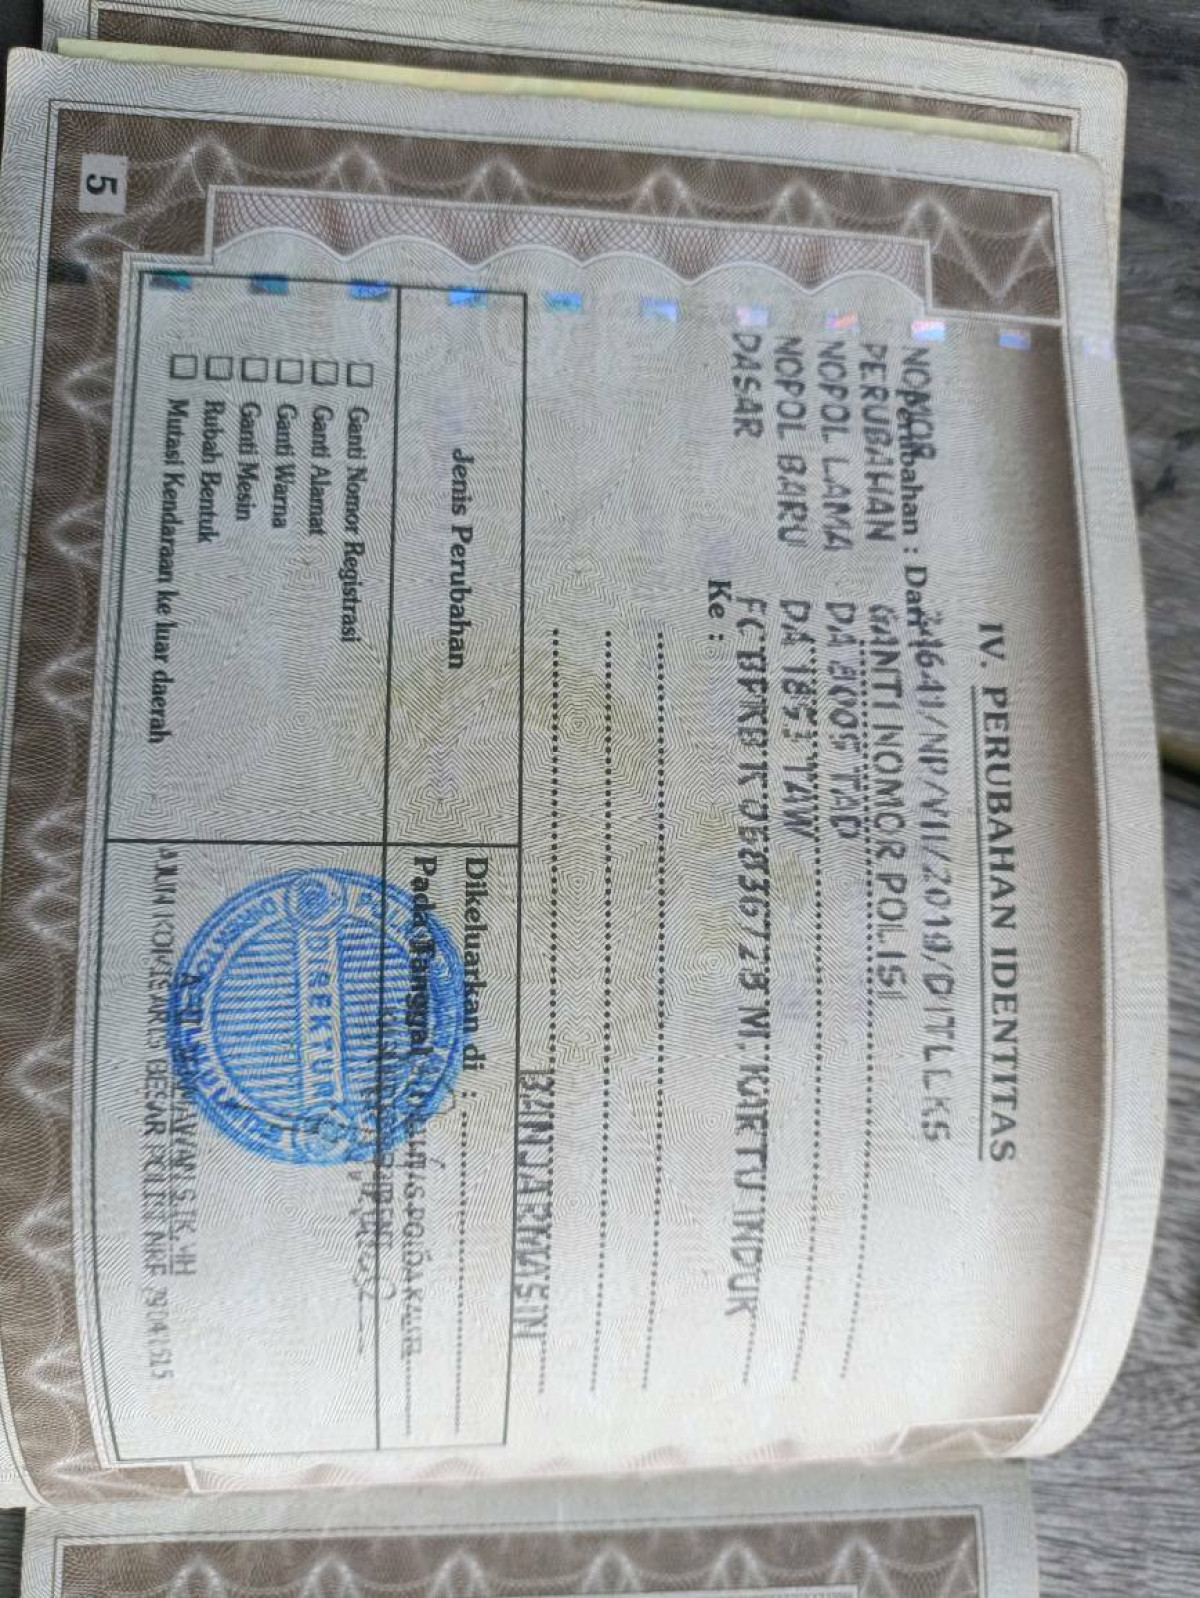 IV. PERUBAHAN IDENTITAS
Perubahan : Dari
NOMOR /NP/VII/2019/DITLLKS
PERUBAHAN GANTI NOMOR POLISI
NOPOL LAMA DA 8005 TAD
NOPOL BARU DA 1853 TAW
DASAR FC BPKB M KARTU INDUK
Ke :
BANJARMASIN
Jenis Perubahan
Dikeluarkan di :
Pada Tanggal
Ganti Nomor Registrasi
Ganti Alamat
Ganti Warna
Ganti Mesin
Rubah Bentuk
Mutasi Kendaraan ke luar daerah
DIREKTUR
S.IK. MH
BESAR POLISI NRP
5